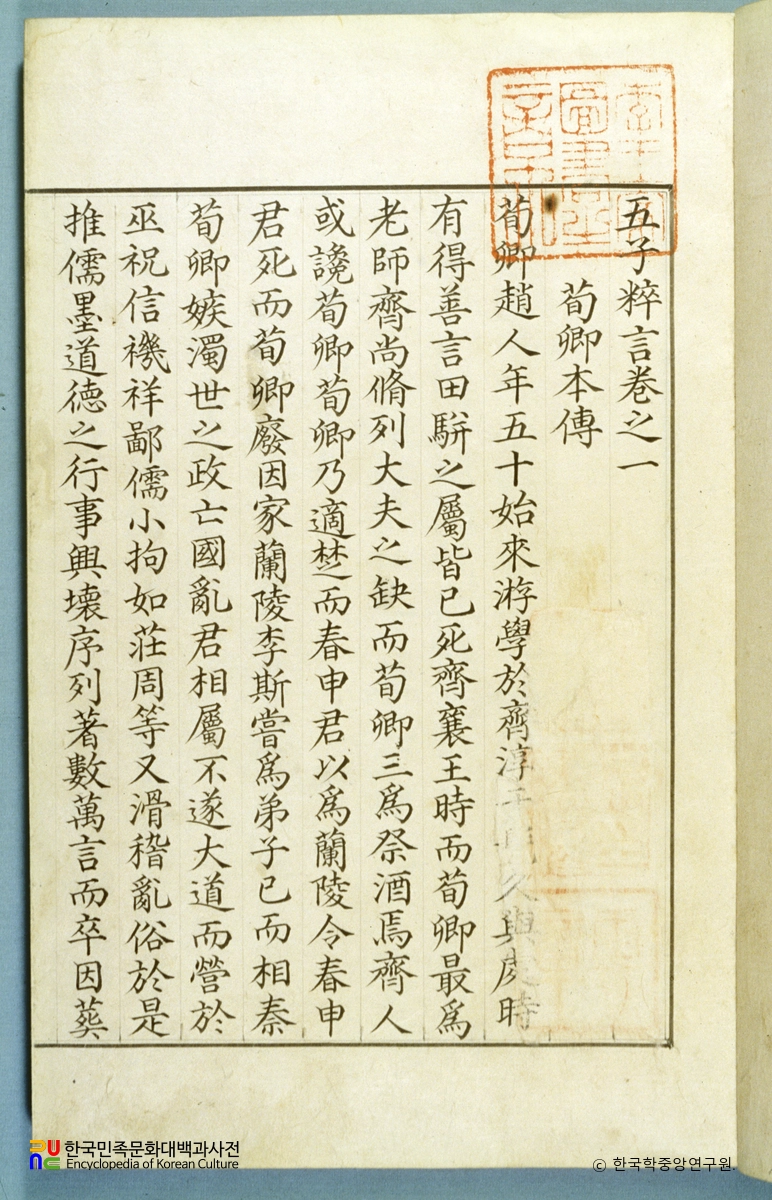 圖書之
五子粹言卷之一
荀卿本傳
荀卿趙人年五十始來游學於齊淳久與處時
有得善言田駢之屬皆已死齊襄王時而荀卿最爲
老師齊尚脩列大夫之缺而荀卿三爲祭酒焉齊人
或讒荀卿荀卿乃適楚而春申君以爲蘭陵令春申
君死而荀卿廢因家蘭陵李斯嘗爲弟子已而相秦
荀卿嫉濁世之政亡國亂君相屬不遂大道而營於
巫祝信禨祥鄙儒小拘如莊周等又滑稽亂俗於是
推儒墨道德之行事興壞序列著數萬言而卒因葬
한국민족문화대백과사전
Encyclopedia of Korean Culture
© 한국학중앙연구원